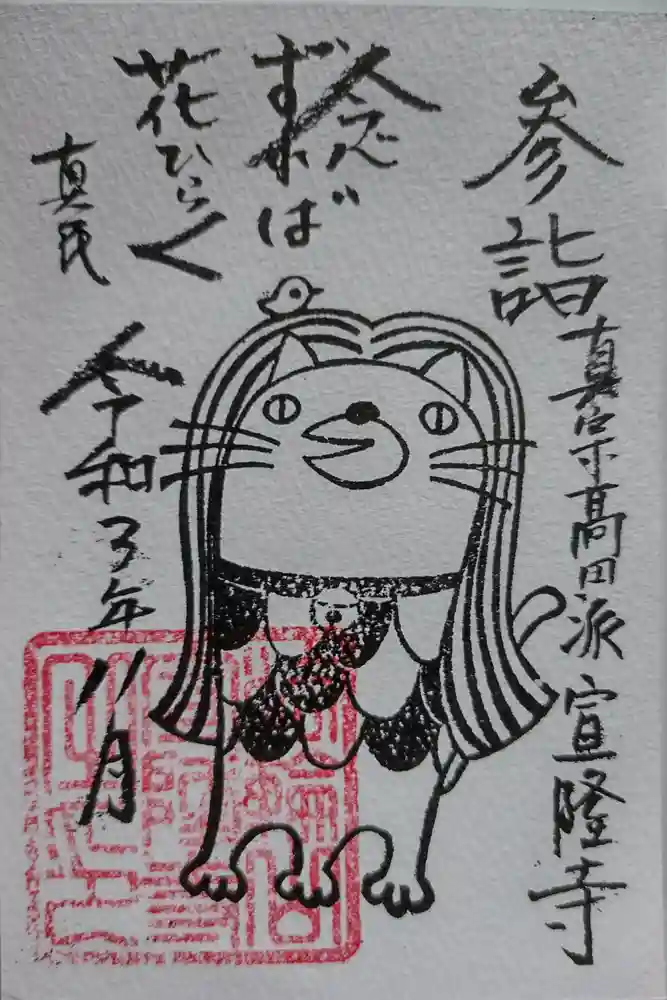 参詣
真宗高田派 宣隆寺
念ずれば
花ひらく
真民
令和3年11月